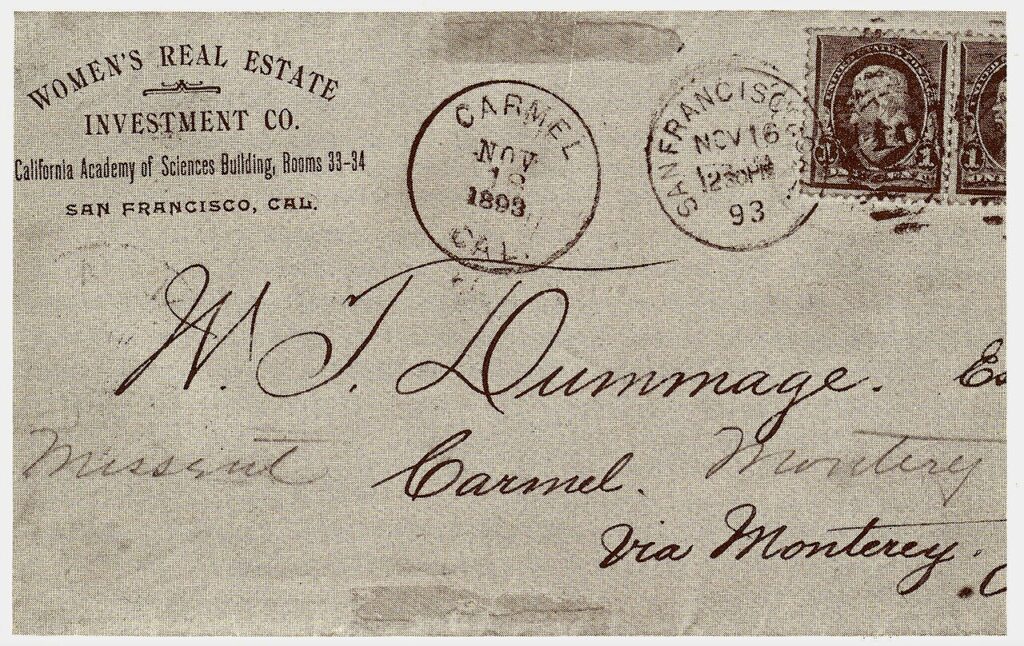 WOMEN'S REAL ESTATE
INVESTMENT CO.
California Academy of Sciences Building, Rooms 33-34
SAN FRANCISCO, CAL.
CARMEL
NOV
18
1893
CAL.
SAN FRANCISCO
NOV 16
1230PM
93
1
1
W. T. Dummage. Es
Missent
Carmel. Monterey
Via Monterey.